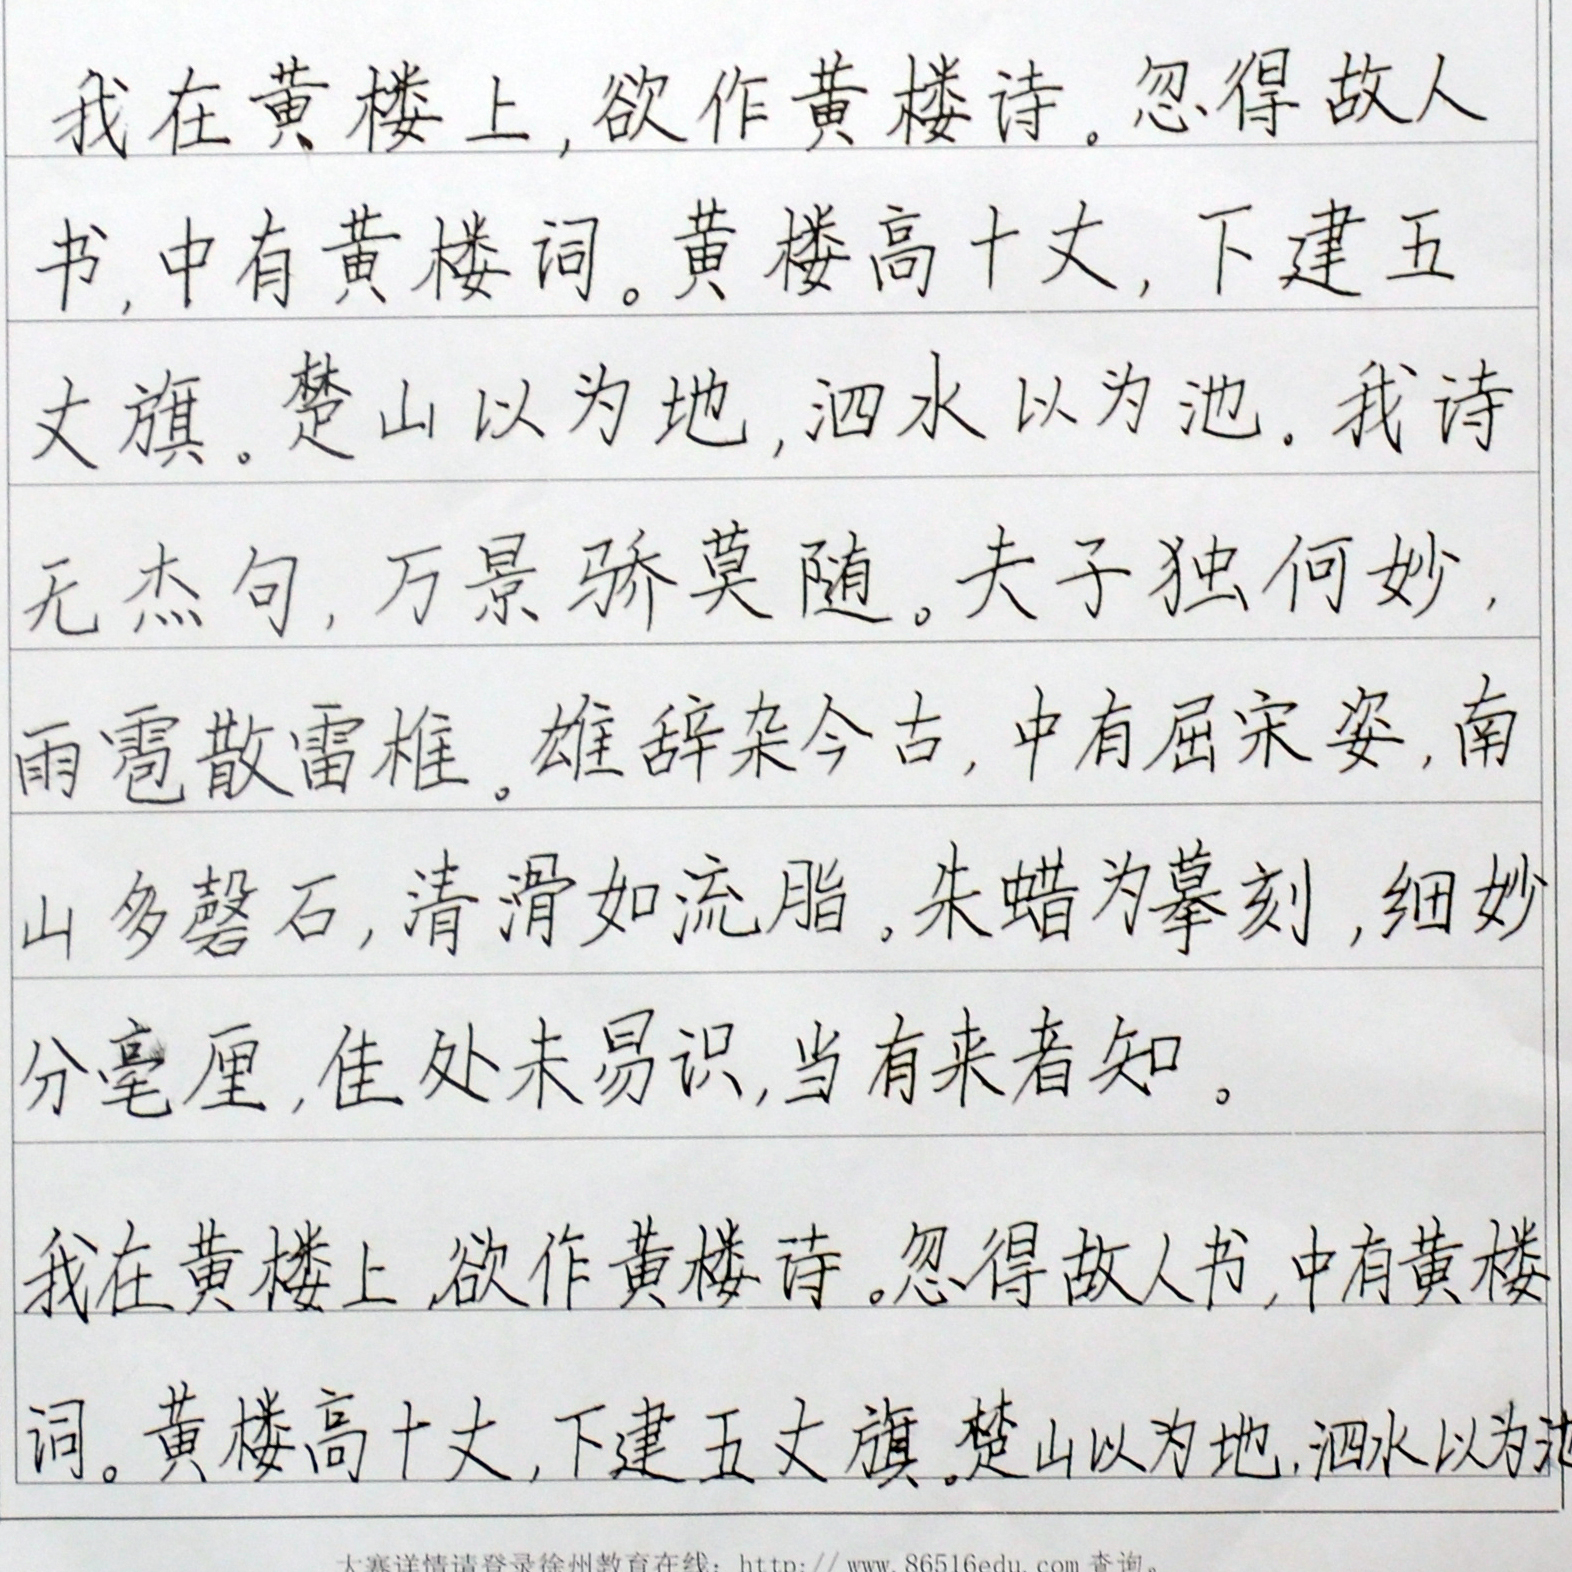 我在黄楼上，欲作黄楼诗。忽得故人
书，中有黄楼词。黄楼高十丈，下建五
丈旗。楚山以为地，泗水以为池。我诗
无杰句，万景骄莫随。夫子独何妙，
雨雹散雷椎。雄辞杂今古，中有屈宋姿，南
山多磬石，清滑如流脂。朱蜡为摹刻，细妙
分毫厘，佳处未易识，当有来者知。
我在黄楼上，欲作黄楼诗。忽得故人书，中有黄楼
词。黄楼高十丈，下建五丈旗。楚山以为地，泗水以为池
大赛详情请登录徐州教育在线：http://www.86516edu.com 查询。